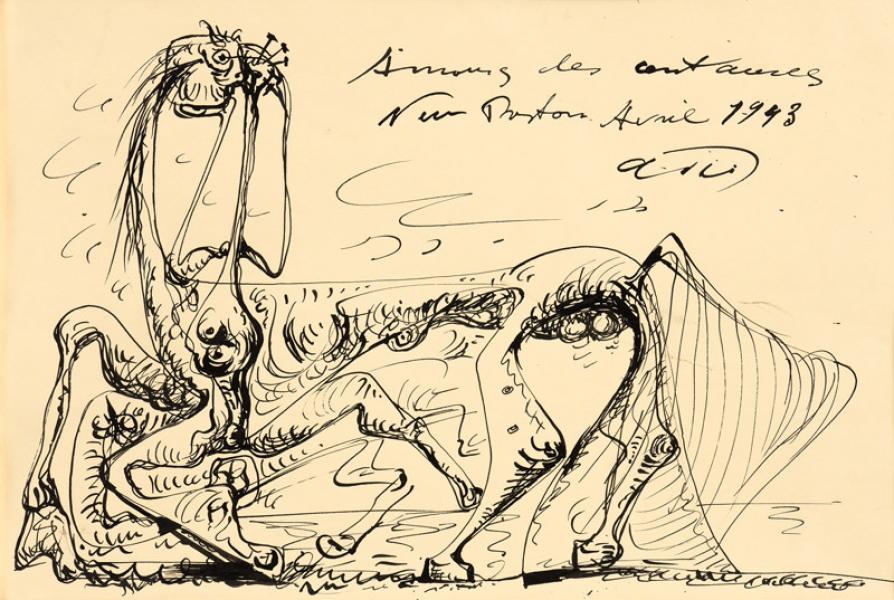 Amours des centaures
New Boston Avril 1943